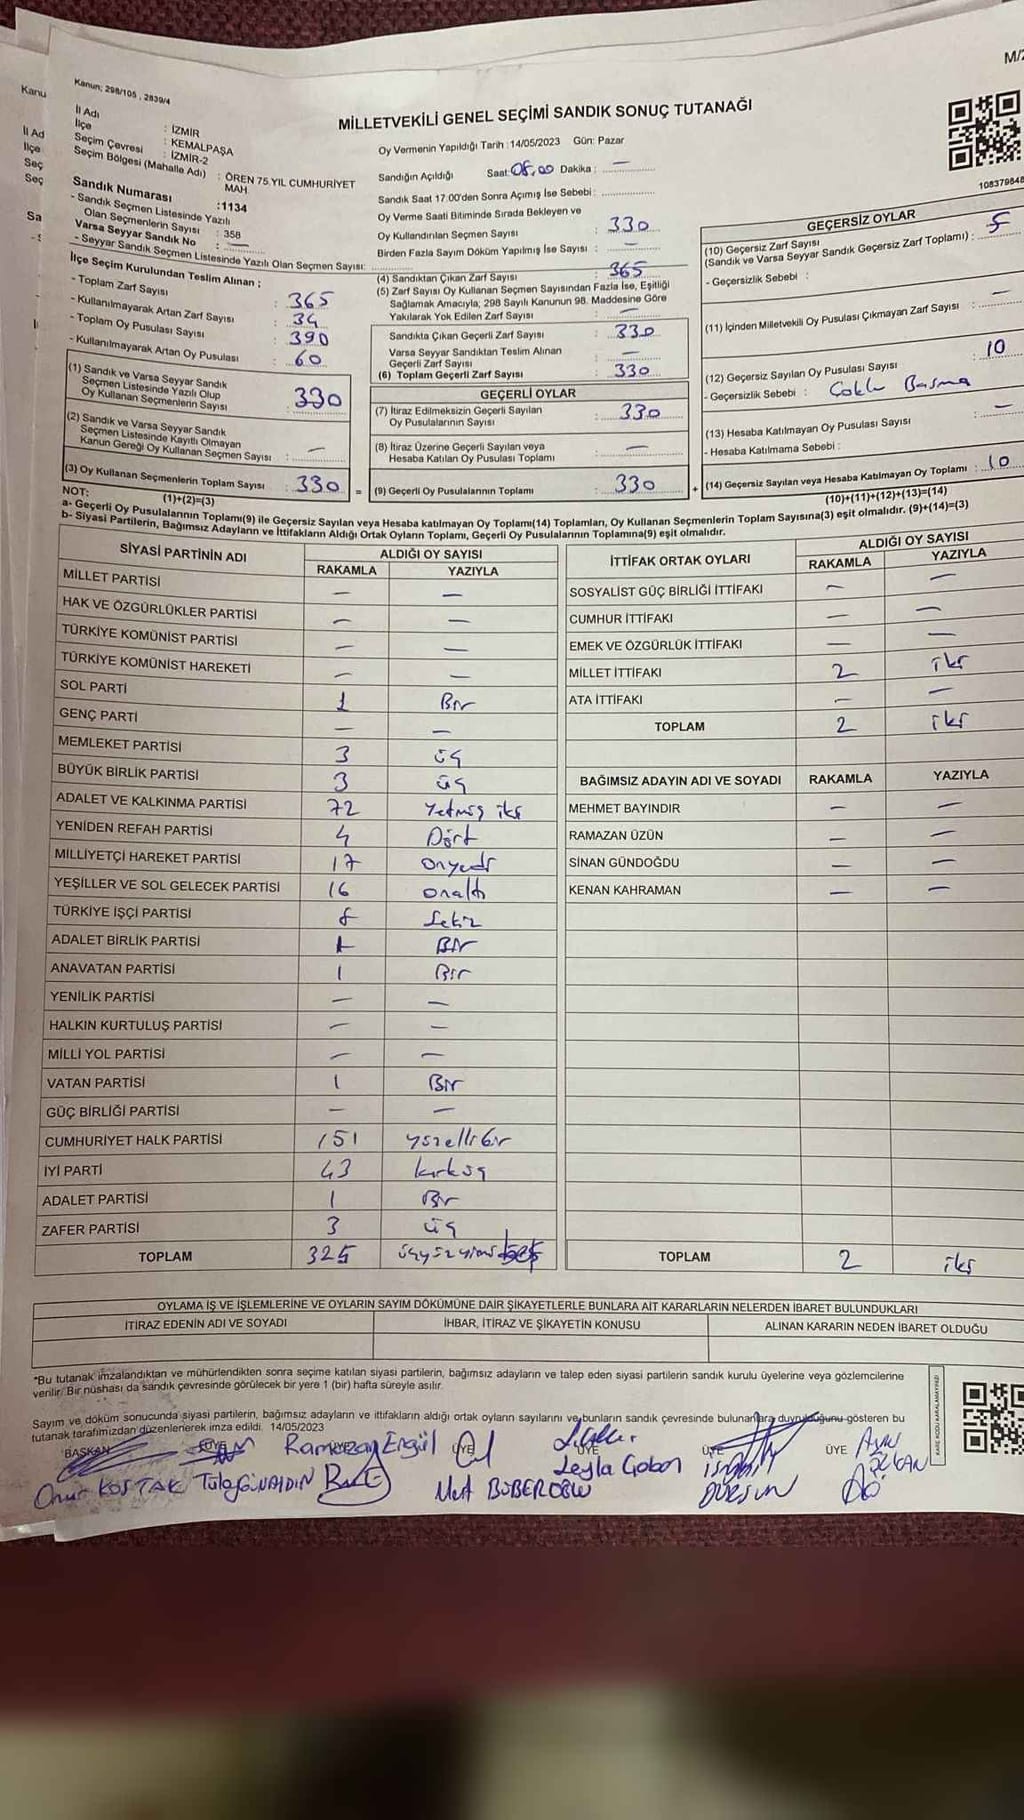 Kanun; 298/105 , 2839/4
M/2
MİLLETVEKİLİ GENEL SEÇİMİ SANDIK SONUÇ TUTANAĞI
İl Adı : İZMİR
İlçe : KEMALPAŞA
Seçim Çevresi : İZMİR-2
Seçim Bölgesi (Mahalle Adı) : ÖREN 75.YIL CUMHURİYET MAH.
Sandık Numarası :1134
- Sandık Seçmen Listesinde Yazılı
Olan Seçmenlerin Sayısı : 358
Varsa Seyyar Sandık No : —
- Seyyar Sandık Seçmen Listesinde Yazılı Olan Seçmen Sayısı:
İlçe Seçim Kurulundan Teslim Alınan ;
- Toplam Zarf Sayısı : 365
- Kullanılmayarak Artan Zarf Sayısı : 34
- Toplam Oy Pusulası Sayısı : 390
- Kullanılmayarak Artan Oy Pusulası : 60
(1) Sandık ve Varsa Seyyar Sandık
Seçmen Listesinde Yazılı Olup
Oy Kullanan Seçmenlerin Sayısı : 330
(2) Sandık ve Varsa Seyyar Sandık
Seçmen Listesinde Kayıtlı Olmayan
Kanun Gereği Oy Kullanan Seçmen Sayısı : —
(3) Oy Kullanan Seçmenlerin Toplam Sayısı : 330
(1)+(2)=(3)
Oy Vermenin Yapıldığı Tarih :14/05/2023 Gün: Pazar
Sandığın Açıldığı Saat: 08,00 Dakika : —
Sandık Saat 17.00'den Sonra Açımış İse Sebebi :
Oy Verme Saati Bitiminde Sırada Bekleyen ve
Oy Kullandırılan Seçmen Sayısı : 330
Birden Fazla Sayım Döküm Yapılmış İse Sayısı : —
(4) Sandıktan Çıkan Zarf Sayısı : 365
(5) Zarf Sayısı Oy Kullanan Seçmen Sayısından Fazla İse, Eşitliği
Sağlamak Amacıyla, 298 Sayılı Kanunun 98. Maddesine Göre
Yakılarak Yok Edilen Zarf Sayısı : —
Sandıkta Çıkan Geçerli Zarf Sayısı : 330
Varsa Seyyar Sandıktan Teslim Alınan
Geçerli Zarf Sayısı : —
(6) Toplam Geçerli Zarf Sayısı : 330
GEÇERLİ OYLAR
(7) İtiraz Edilmeksizin Geçerli Sayılan
Oy Pusulalarının Sayısı : 330
(8) İtiraz Üzerine Geçerli Sayılan veya
Hesaba Katılan Oy Pusulası Toplamı : —
= (9) Geçerli Oy Pusulalarının Toplamı : 330 +
108379848
GEÇERSİZ OYLAR
(10) Geçersiz Zarf Sayısı
(Sandık ve Varsa Seyyar Sandık Geçersiz Zarf Toplamı) : 5
- Geçersizlik Sebebi :
(11) İçinden Milletvekili Oy Pusulası Çıkmayan Zarf Sayısı : —
(12) Geçersiz Sayılan Oy Pusulası Sayısı : 10
- Geçersizlik Sebebi : Çoklu Basma
(13) Hesaba Katılmayan Oy Pusulası Sayısı : —
- Hesaba Katılmama Sebebi :
(14) Geçersiz Sayılan veya Hesaba Katılmayan Oy Toplamı : 10
(10)+(11)+(12)+(13)=(14)
NOT:
a- Geçerli Oy Pusulalarının Toplamı(9) ile Geçersiz Sayılan veya Hesaba katılmayan Oy Toplamı(14) Toplamları, Oy Kullanan Seçmenlerin Toplam Sayısına(3) eşit olmalıdır. (9)+(14)=(3)
b- Siyasi Partilerin, Bağımsız Adayların ve İttifakların Aldığı Ortak Oyların Toplamı, Geçerli Oy Pusulalarının Toplamına(9) eşit olmalıdır.
SİYASİ PARTİNİN ADI ALDIĞI OY SAYISI
RAKAMLA YAZIYLA
MİLLET PARTİSİ — —
HAK VE ÖZGÜRLÜKLER PARTİSİ — —
TÜRKİYE KOMÜNİST PARTİSİ — —
TÜRKİYE KOMÜNİST HAREKETİ — —
SOL PARTİ 1 Bir
GENÇ PARTİ — —
MEMLEKET PARTİSİ 3 üç
BÜYÜK BİRLİK PARTİSİ 3 üç
ADALET VE KALKINMA PARTİSİ 72 Yetmiş iki
YENİDEN REFAH PARTİSİ 4 Dört
MİLLİYETÇİ HAREKET PARTİSİ 17 onyedi
YEŞİLLER VE SOL GELECEK PARTİSİ 16 onaltı
TÜRKİYE İŞÇİ PARTİSİ 8 Sekiz
ADALET BİRLİK PARTİSİ 1 Bir
ANAVATAN PARTİSİ 1 Bir
YENİLİK PARTİSİ — —
HALKIN KURTULUŞ PARTİSİ — —
MİLLİ YOL PARTİSİ — —
VATAN PARTİSİ 1 Bir
GÜÇ BİRLİĞİ PARTİSİ — —
CUMHURİYET HALK PARTİSİ 151 yüzellibir
İYİ PARTİ 43 kırküç
ADALET PARTİSİ 1 Bir
ZAFER PARTİSİ 3 üç
TOPLAM 325 üçyüzyirmibeş
İTTİFAK ORTAK OYLARI ALDIĞI OY SAYISI
RAKAMLA YAZIYLA
SOSYALİST GÜÇ BİRLİĞİ İTTİFAKI — —
CUMHUR İTTİFAKI — —
EMEK VE ÖZGÜRLÜK İTTİFAKI — —
MİLLET İTTİFAKI 2 iki
ATA İTTİFAKI — —
TOPLAM 2 iki
BAĞIMSIZ ADAYIN ADI VE SOYADI RAKAMLA YAZIYLA
MEHMET BAYINDIR — —
RAMAZAN ÜZÜN — —
SİNAN GÜNDOĞDU — —
KENAN KAHRAMAN — —
TOPLAM 2 iki
OYLAMA İŞ VE İŞLEMLERİNE VE OYLARIN SAYIM DÖKÜMÜNE DAİR ŞİKAYETLERLE BUNLARA AİT KARARLARIN NELERDEN İBARET BULUNDUKLARI
İTİRAZ EDENİN ADI VE SOYADI İHBAR, İTİRAZ VE ŞİKAYETİN KONUSU ALINAN KARARIN NEDEN İBARET OLDUĞU
*Bu tutanak imzalandıktan ve mühürlendikten sonra seçime katılan siyasi partilerin, bağımsız adayların ve talep eden siyasi partilerin sandık kurulu üyelerine veya gözlemcilerine
verilir. Bir nüshası da sandık çevresinde görülecek bir yere 1 (bir) hafta süreyle asılır.
Sayım ve döküm sonucunda siyasi partilerin, bağımsız adayların ve ittifakların aldığı ortak oyların sayılarını ve bunların sandık çevresinde bulunanlara duyrulduğunu gösteren bu
tutanak tarafımızdan düzenlenerek imza edildi. 14/05/2023
BAŞKAN ÜYE ÜYE ÜYE ÜYE ÜYE
Ramazan Ergül
Onur KOSTAK Tülay GÜNAYDIN Mert BÜBEROĞLU Leyla Çoban DURSUN ÖZKAN
KARE KODU KARALAMAYINIZ!